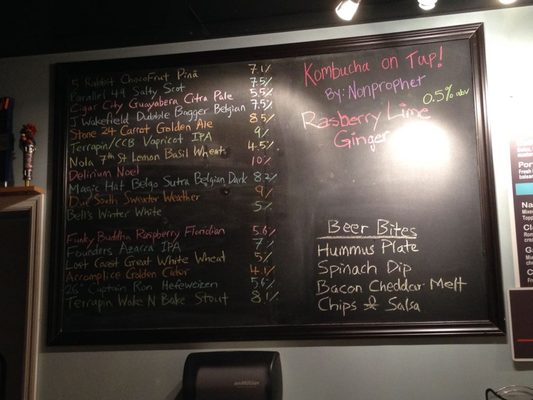 5 Rabbit ChocoFrut Piña 7.1%
Parallel 49 Salty Scot 7.5%
Cigar City Guayabera Citra Pale 5.5%
J Wakefield Dubbele Bagger Belgian 7.5%
Stone 24 Carrot Golden Ale 8.5%
Terrapin/CCB Vapricot IPA 9%
Nola 7th St Lemon Basil Wheat 4.5%
Delirium Noel 10%
Magic Hat Belgo Sutra Belgian Dark 8.2%
Due South Sweater Weather 9%
Bell's Winter White 5%
Funky Buddha Raspberry Floridian 5.6%
Founders Azacca IPA 7%
Lost Coast Great White Wheat 5%
Accomplice Golden Cider 4.1%
26° Captain Ron Hefeweizen 5.6%
Terrapin Wake N Bake Stout 8.1%
Kombucha on Tap!
By: Nonprophet
0.5% abv
Rasberry Lime
Ginger
Beer Bites
Hummus Plate
Spinach Dip
Bacon Cheddar Melt
Chips & Salsa